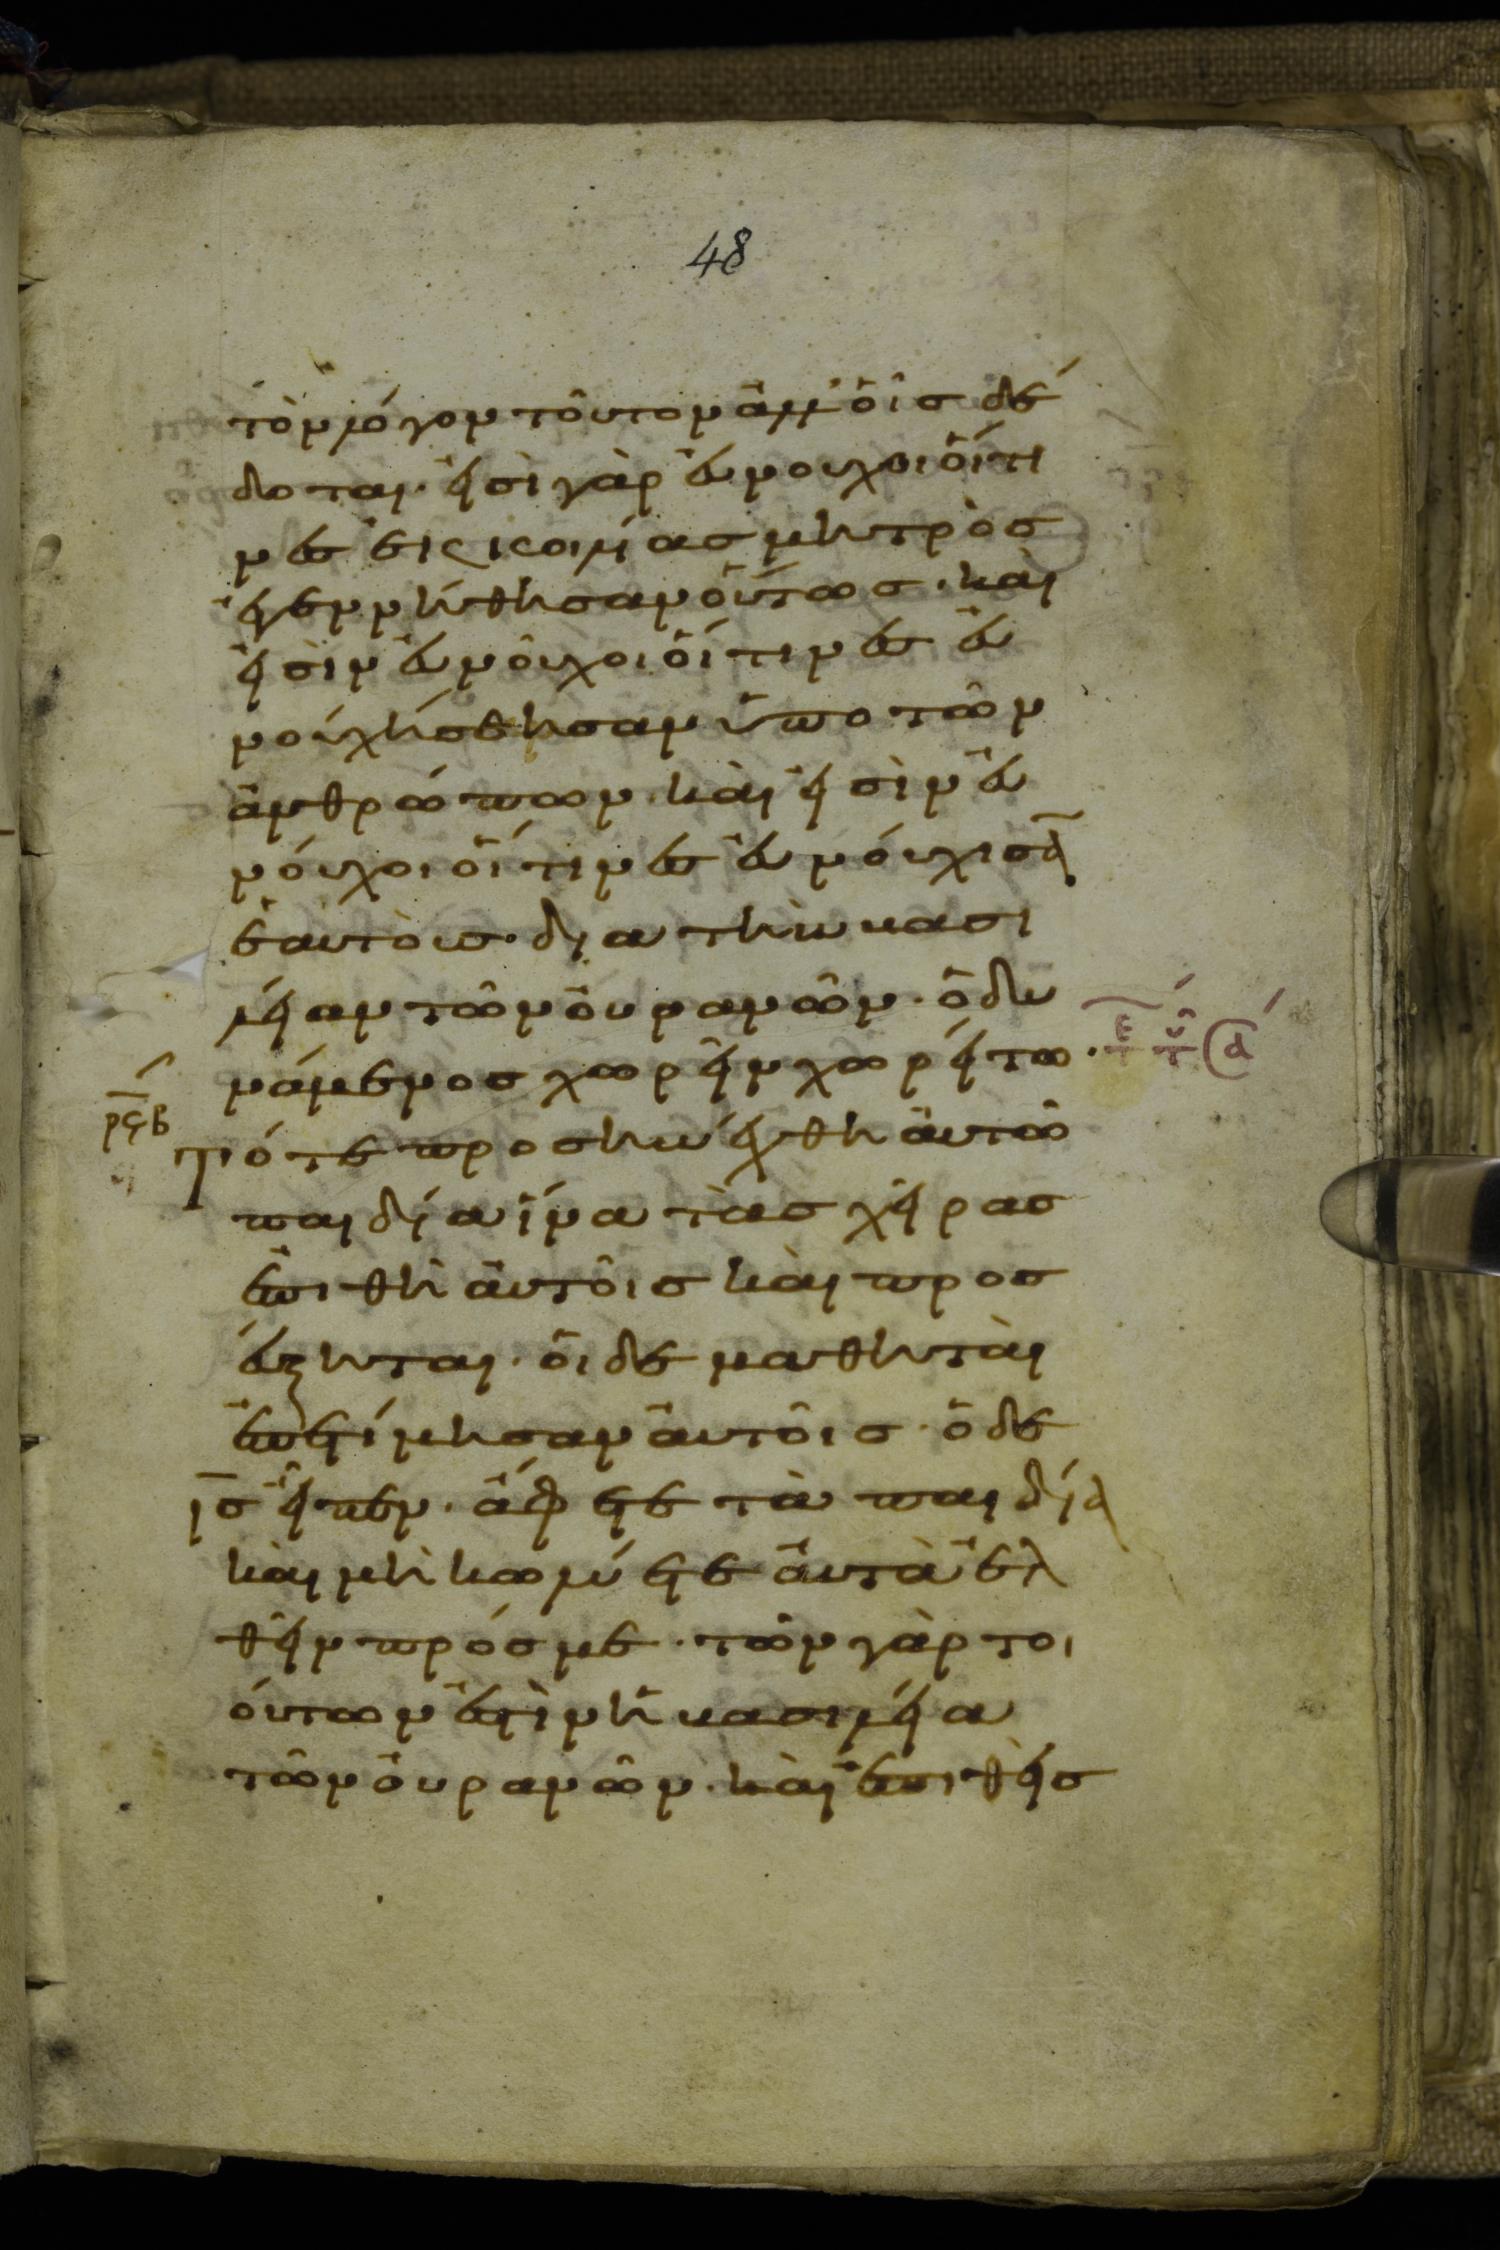 48
τὸν λόγον τοῦτον ἀλλ' οἷς δέ
δοται· εἰσὶ γὰρ εὐνουχοι οἵτι
νες ἐις κοιλίας μητρὸς
ἐγεννήθησαν οὕτως· καὶ
εἰσὶν ἐυνοῦχοι οἵτινες ἐυ
νουχίσθησαν ὑπο τῶν
ἀνθρώπων· καὶ εἰσὶν ἐυ
νόυχοι οἵτινες ἐυνόυχισᾱ
ἑαυτοὺς· δϊα τὴν βασι
λείαν τῶν οὐρανῶν· ὁ δυ
νάμενος χωρεῖν χωρείτω·
ε̄τ υ̑τ ᾱ
ρϟβ
Τότε προσηνέχθη ἀυτῶ
παιδία ἵνα τὰς χεῖρας
ἐπιθῆ ἀυτοῖς καὶ προσ
εύξηται· ὁι δε μαθηταὶ
ἐπετίμησαν ἀυτοῖς· ὁ δε
ις̄ εἶπεν· ἄφετε τὰ παιδία
καὶ μὴ κωλύετε ἀυτὰ ἐλ
θεῖν πρός με· τῶν γὰρ τοι
όυτων ἐστὶν ἡ βασιλεία
τῶν ὀυρανῶν· καὶ ἐπιθεὶς